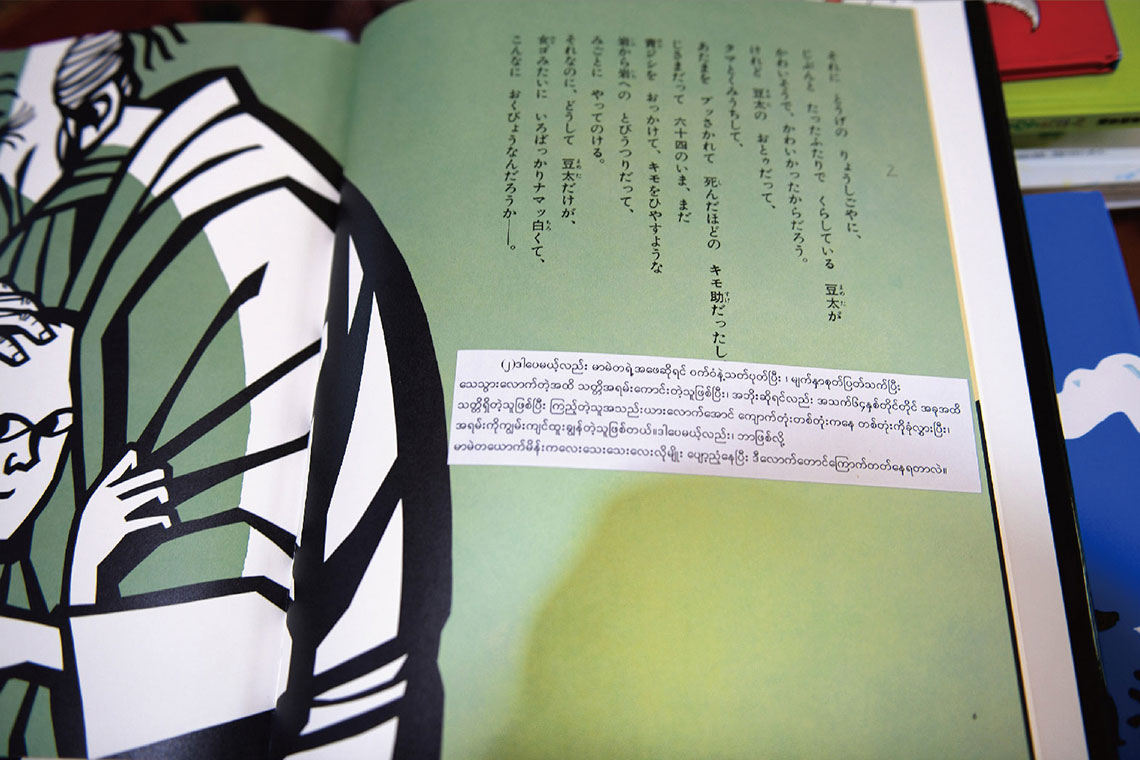 2
それに とうげの りょうしごやに、
じぶんと たったふたりで くらしている 豆太が
かわいそうで、かわいかったからだろう。
けれど 豆太の おとぅだって、
クマとくみうちして、
あたまを ブッさかれて 死んだほどの キモ助だったし
じさまだって 六十四のいま、まだ
青ジシを おっかけて、キモをひやすような
岩から岩への とびうつりだって、
みごとに やってのける。
それなのに、どうして 豆太だけが、
女ゴみたいに いろばっかりナマッ白くて、
こんなに おくびょうなんだろうか――。
(၂)ဒါပေမယ့်လည်း မာမဲတရဲ့အဖေဆိုရင် ဝက်ဝံနဲ့သတ်ပုတ်ပြီး ၊ မျက်နှာစုတ်ပြတ်သက်ပြီး
သေသွားလောက်တဲ့အထိ သတ္တိအရမ်းကောင်းတဲ့သူဖြစ်ပြီး၊ အဘိုးဆိုရင်လည်း အသက်၆၄နှစ်တိုင်တိုင် အခုအထိ
သတ္တိရှိတဲ့သူဖြစ်ပြီး ကြည့်တဲ့သူအသည်းယားလောက်အောင် ကျောက်တုံးတစ်တုံးကနေ တစ်တုံးကိုခုံလွှားပြီး၊
အရမ်းကိုကျွမ်းကျင်ထူးချွန်တဲ့သူဖြစ်တယ်။ဒါပေမယ့်လည်း၊ ဘာဖြစ်လို့
မာမဲတယောက်မိန်းကလေးသေးသေးလေးလိုမျိုး ပျော့ညံ့နေပြီး ဒီလောက်တောင်ကြောက်တတ်နေရတာလဲ။
6